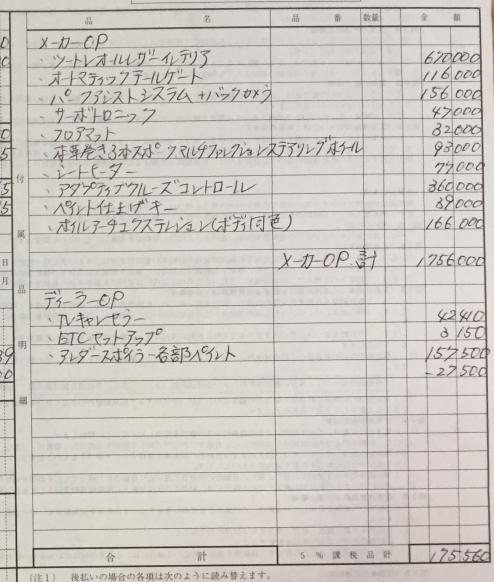 品名 品番 数量 金額
メーカーOP
・ツートンオールレザーインテリア 670000
・オートマティックテールゲート 116000
・パークアシストシステム+バックカメラ 156000
・サーボトロニック 47000
・フロアマット 32000
・本革巻き3本スポークマルチファンクションステアリングホイール 93000
・シートヒーター 77000
・アダプティブクルーズコントロール 360000
・ペイント仕上げキー 39000
・ホイルアーチエクステンション(ボディ同色) 166000
メーカーOP 計 1756000
ディーラーOP
・TVキャンセラー 42410
・ETCセットアップ 3150
・アンダースポイラー各部ペイント 157500
-27500
付属品明細
合計 5%課税品計 175560
(注1) 後払いの場合の各項は次のように読み替えます。